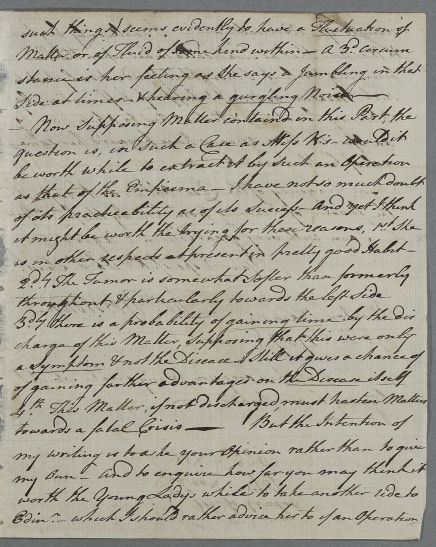 such things) seems evidently to have a Fluctuation of
Matter or of Fluid of some kind within — A 3d. circum
stance is her feeling as she says a Jumbling in that
Side at times & hearing a gurgling Noise —
— Now Supposing Matter containd in this Part the
question is, in such a Case as Miss K's — would it
be worth while to extract it by such an Operation
as that of the Empyema — I have not so much doubt
of its practicability as of its Success And yet I think
it might be worth the trying for these reasons, 1st She
is in other respects at present in pretty good Habit —
2dly The Tumor is somewhat softer than formerly
throughout & particularly towards the left Side
3dly there is a probability of gaining time by the dis
charge of this Matter, Supposing that this were only
a symptom & not the Disease — Still it gives a chance of
of gaining farther advantages on the Disease itself
4th. This Matter, if not discharged must hasten Matters
towards a fatal Crisis — But the Intention of
my writing is to ask your Opinion rather than to give
my own — and to enquire how far you may think it
worth the Young Ladys while to take another ride to
Edinr. — which I should rather advise her to if an Operation